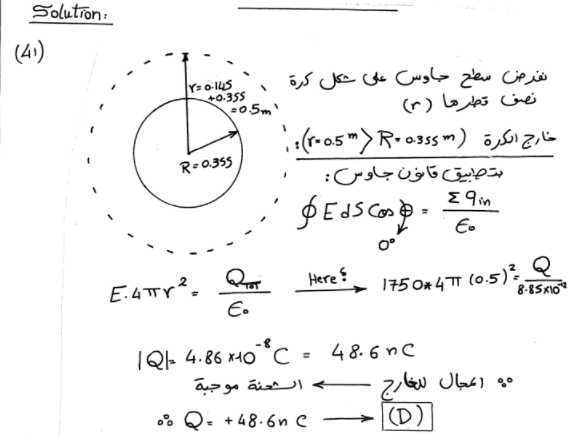 Solution:
(41)
r=0.145
+0.355
=0.5m
R=0.355
نفرض سطح جاوس على شكل كرة
نصف قطرها (r)
خارج الكرة (r=0.5m > R=0.355m):
بتطبيق قانون جاوس:
∮ E dS Cos θ = Σ q in / ε₀
0°
E.4πr² = Q_Tot / ε₀
Here: → 1750*4π (0.5)² = Q / 8.85x10⁻¹²
|Q|= 4.86 x10⁻⁸ C = 48.6 nC
∵ المجال للخارج ← الشحنة موجبة
∴ Q= +48.6n C → (D)